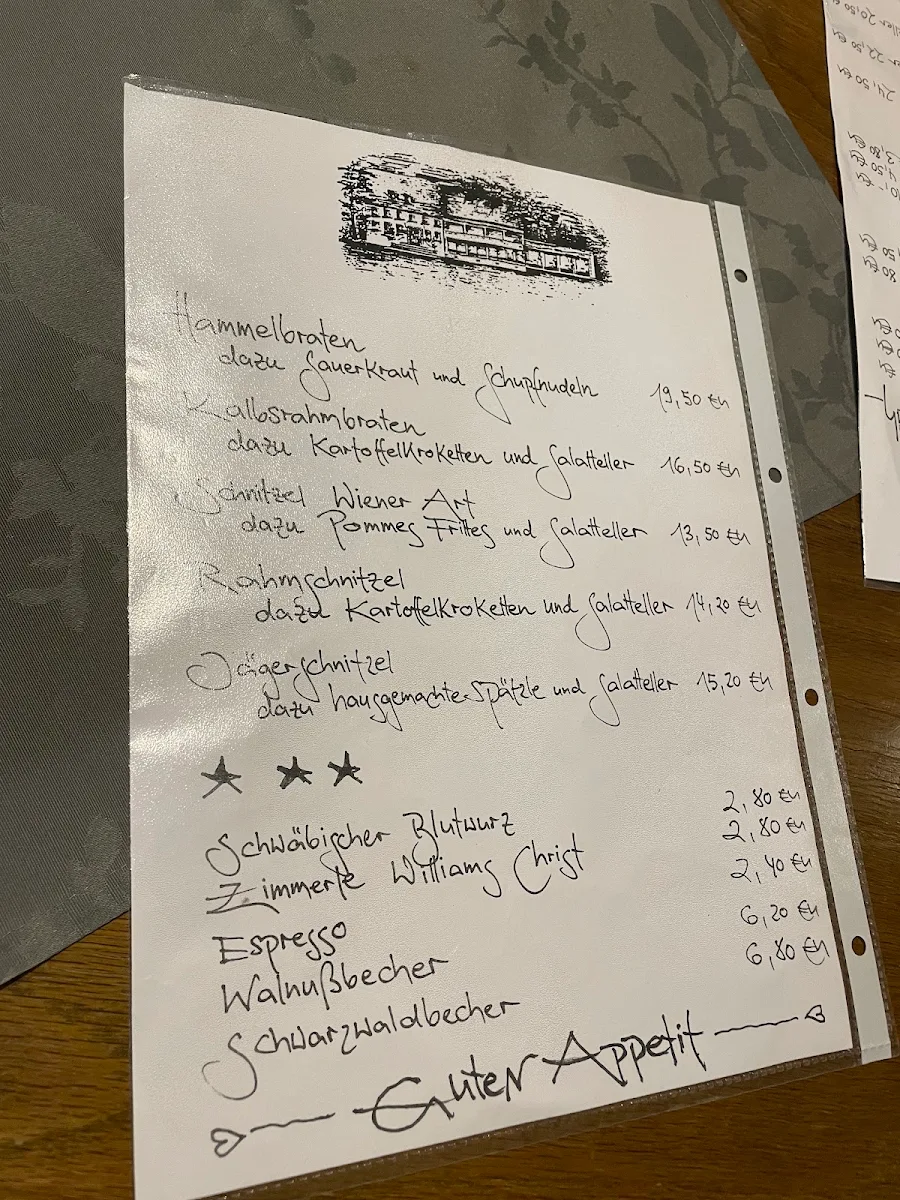 Hammelbraten
dazu Sauerkraut und Schupfnudeln 19,50 €
Kalbsrahmbraten
dazu Kartoffelkroketten und Salatteller 16,50 €
Schnitzel Wiener Art
dazu Pommes Frittes und Salatteller 13,50 €
Rahmschnitzel
dazu Kartoffelkroketten und Salatteller 14,20 €
Jägerschnitzel
dazu hausgemachte Spätzle und Salatteller 15,20 €
Schwäbischer Blutwurz 2,80 €
Zimmerle Williams Christ 2,80 €
Espresso 2,40 €
Walnußbecher 6,20 €
Schwarzwaldbecher 6,80 €
Guten Appetit
22,50 €
24,50 €
3,80 €
4,50 €